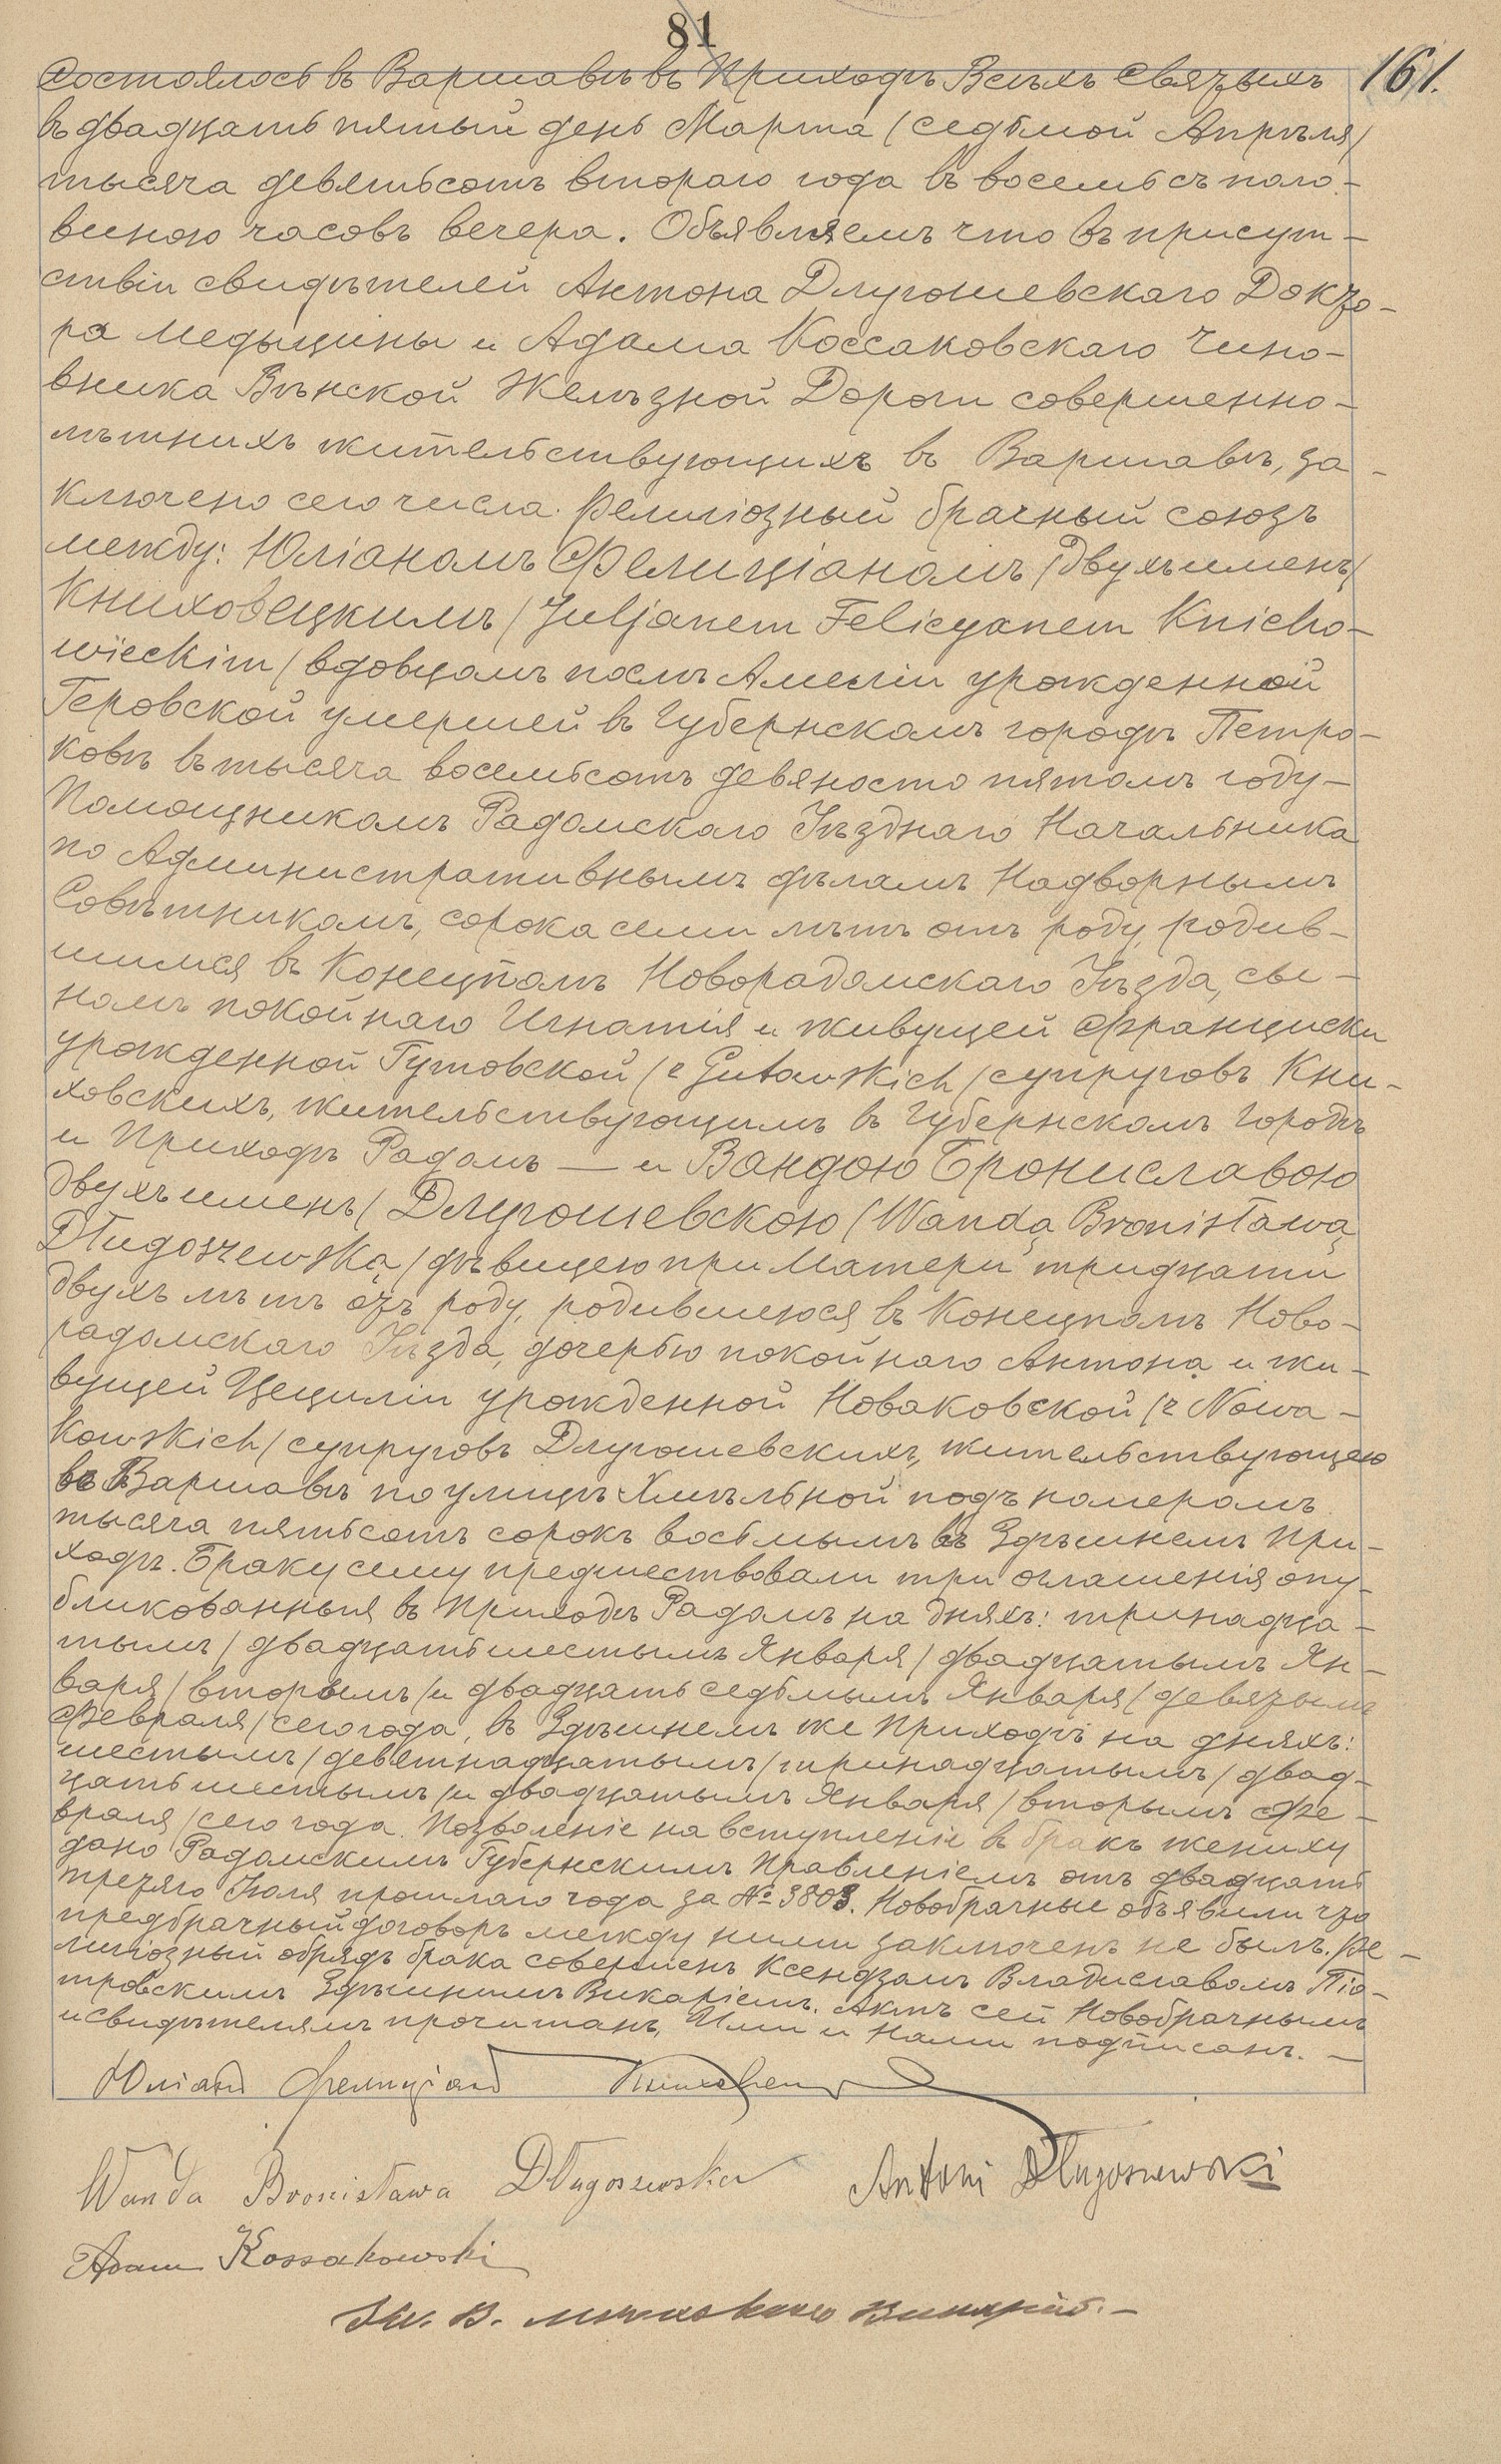 81
161.
Состоялось въ Варшавѣ въ Приходѣ Всѣхъ Святыхъ
въ двадцать пятый день Марта /седьмой Апрѣля/
тысяча девятьсотъ втораго года въ восемь съ поло-
виною часовъ вечера. Объявляемъ что въ присут-
ствіи свидѣтелей Антона Длугошевскаго Докто-
ра медыцины и Адама Коссаковскаго Чино-
вника Вѣнской Желѣзной Дороги совершенно-
лѣтнихъ жительствующихъ въ Варшавѣ, за-
ключено сего числа религіозный брачный союзъ
между: Юліаномъ Фелиціаномъ /двухъ именъ/
Книховецкимъ /Juljanem Felicyanem Knicho-
wieckim/ вдовцомъ послѣ Амеліи урожденной
Геровской умершей въ Губернскомъ городѣ Петро-
ковѣ въ тысяча восемьсотъ девяносто пятомъ году-
Помощникомъ Радомскаго Уѣзднаго Начальника
по Административнымъ дѣламъ Надворнымъ
Совѣтникомъ, сорока семи лѣтъ отъ роду, родив-
шимся въ Конецполѣ Новорадомскаго Уѣзда, сы-
номъ покойнаго Игнатія и живущей Франциски
урожденной Гутовской /z Gutowskich/ супруговъ Кни-
ховскихъ, жительствующимъ въ Губернскомъ Городѣ
и Приходѣ Радомъ — и Вандою Брониславою
двухъ именъ/ Длугошевскою /Wandą Bronisławą
Długoszewską/ дѣвицею при Матери тридцати
двухъ лѣтъ отъ роду, родившеюся въ Конецполѣ Ново-
радомскаго Уѣзда, дочерью покойнаго Антона и жи-
вущей Цециліи урожденной Новаковской /z Nowa-
kowskich/ супруговъ Длугошевскихъ, жительствующею
въ Варшавѣ по улицѣ Хмѣльной подъ номеромъ
тысяча пятьсотъ сорокъ восьмымъ въ Здѣшнемъ При-
ходѣ. Браку сему предшествовали три оглашенія опу-
бликованныя въ Приходѣ Радомъ на дняхъ: тринадца-
тымъ /двадцать шестымъ Января/ двадцатымъ Ян-
варя /вторымъ/ и двадцать седьмымъ Января /девятымъ
Февраля/ сего года, въ Здѣшнемъ же Приходѣ на дняхъ:
шестымъ /девятнадцатымъ/ тринадцатымъ /двад-
цать шестымъ/ и двадцатымъ Января /вторымъ Фе-
враля/ сего года. Позволеніе на вступленіе въ бракъ жениху
дано Радомскимъ Губернскимъ Правленіемъ отъ двадцать
третяго Іюля прошлаго года за № 3803. Новобрачные объявили что
предбрачный договоръ между ними заключенъ не былъ. Ре-
лигіозный обрядъ брака совершенъ Ксендзомъ Владиславомъ Піо-
тровскимъ Здѣшнимъ Викаріемъ. Актъ сей Новобрачнымъ
и свидѣтелямъ прочитанъ, Ими и Нами подписанъ. —
Юліанъ Фелиціанъ Книховецкій
Wanda Bronisława Długoszewska Antoni Długoszewski
Adam Kossakowski